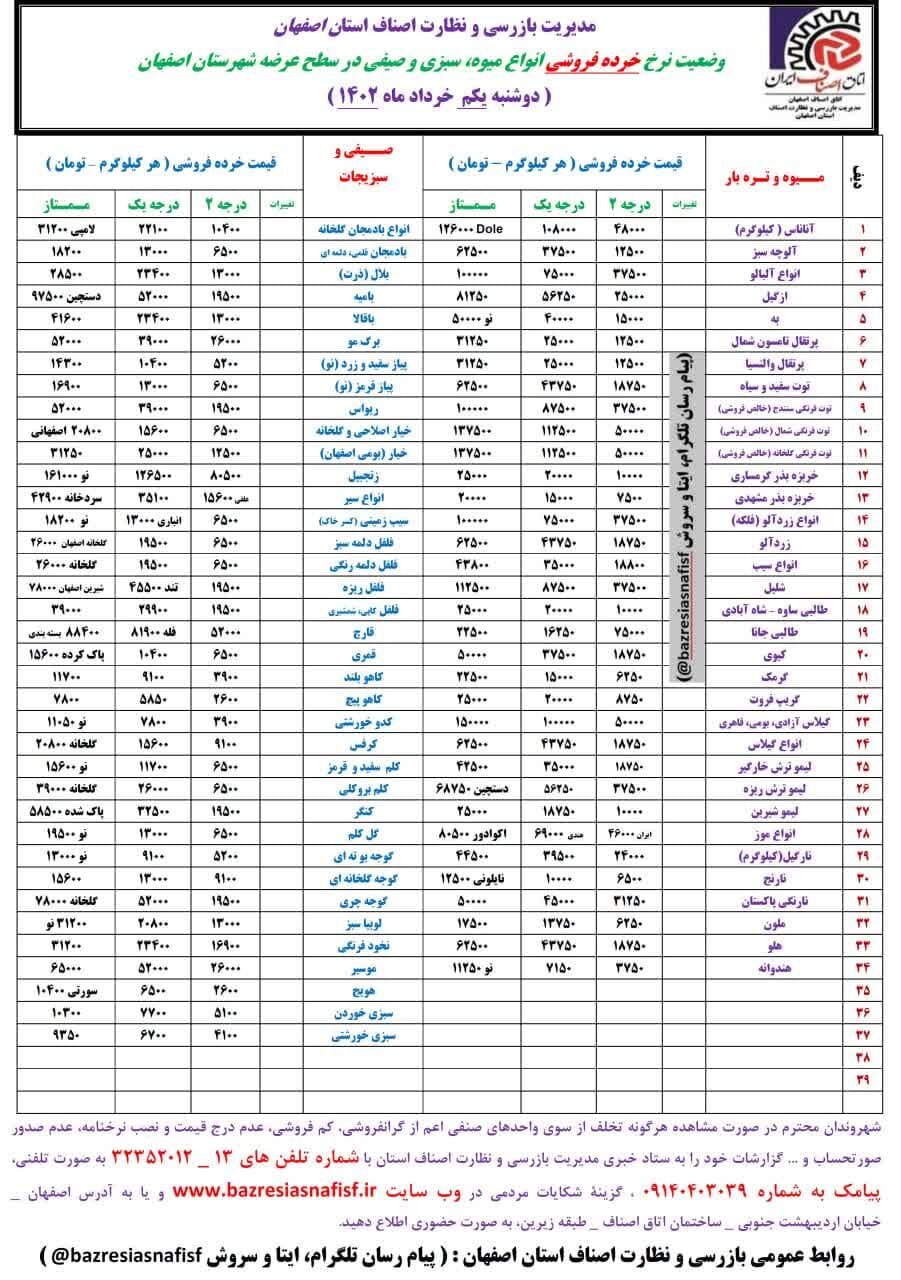 مدیریت بازرسی و نظارت اصناف استان اصفهان
وضعیت نرخ خرده فروشی انواع میوه، سبزی و صیفی در سطح عرضه شهرستان اصفهان
( دوشنبه یکم خرداد ماه ۱۴۰۲ )
اتاق اصناف ایران
اتاق اصناف اصفهان
مدیریت بازرسی و نظارت اصناف
استان اصفهان
ردیف میوه و تره بار قیمت خرده فروشی ( هر کیلوگرم – تومان ) صیفی و سبزیجات قیمت خرده فروشی ( هر کیلوگرم - تومان )
تغییرات درجه ۲ درجه یک ممتاز تغییرات درجه ۲ درجه یک ممتاز
۱ آناناس ( کیلوگرم) ۴۸۰۰۰ ۱۰۸۰۰۰ Dole ۱۲۶۰۰۰ انواع بادمجان گلخانه ۱۰۴۰۰ ۲۲۱۰۰ لامپی ۳۱۲۰۰
۲ آلوچه سبز ۱۲۵۰۰ ۳۷۵۰۰ ۶۲۵۰۰ بادمجان قلمی، دلمه ای ۶۵۰۰ ۱۳۰۰۰ ۱۸۲۰۰
۳ انواع آلبالو ۳۷۵۰۰ ۷۵۰۰۰ ۱۰۰۰۰۰ بلال (ذرت) ۱۳۰۰۰ ۲۳۴۰۰ ۲۸۵۰۰
۴ ازگیل ۲۵۰۰۰ ۵۶۲۵۰ ۸۱۲۵۰ بامیه ۱۹۵۰۰ ۵۲۰۰۰ دستچین ۹۷۵۰۰
۵ به ۱۵۰۰۰ ۴۰۰۰۰ نو ۵۰۰۰۰ باقالا ۱۳۰۰۰ ۲۳۴۰۰ ۴۱۶۰۰
۶ پرتقال تامسون شمال ۱۲۵۰۰ ۲۵۰۰۰ ۳۱۲۵۰ برگ مو ۲۶۰۰۰ ۳۹۰۰۰ ۵۲۰۰۰
۷ پرتقال والنسیا ۱۲۵۰۰ ۲۵۰۰۰ ۳۱۲۵۰ پیاز سفید و زرد (نو) ۵۲۰۰ ۱۰۴۰۰ ۱۴۳۰۰
۸ توت سفید و سیاه ۱۸۷۵۰ ۴۳۷۵۰ ۶۲۵۰۰ پیاز قرمز (نو) ۶۵۰۰ ۱۳۰۰۰ ۱۶۹۰۰
۹ توت فرنگی سنندج (خالص فروشی) ۳۷۵۰۰ ۸۷۵۰۰ ۱۰۰۰۰۰ ریواس ۱۹۵۰۰ ۳۹۰۰۰ ۵۲۰۰۰
۱۰ توت فرنگی شمال (خالص فروشی) ۵۰۰۰۰ ۱۱۲۵۰۰ ۱۳۷۵۰۰ خیار اصلاحی و گلخانه ۶۵۰۰ ۱۵۶۰۰ ۲۰۸۰۰ اصفهانی
۱۱ توت فرنگی گلخانه (خالص فروشی) ۵۰۰۰۰ ۱۱۲۵۰۰ ۱۳۷۵۰۰ خیار (بومی اصفهان) ۱۲۵۰۰ ۲۵۰۰۰ ۳۱۲۵۰
۱۲ خربزه بذر گرمساری ۱۰۰۰۰ ۲۰۰۰۰ ۲۵۰۰۰ زنجبیل ۸۰۵۰۰ ۱۲۶۵۰۰ نو ۱۶۱۰۰۰
۱۳ خربزه بذر مشهدی ۷۵۰۰ ۱۵۰۰۰ ۲۰۰۰۰ انواع سیر ۱۵۶۰۰ ۳۵۱۰۰ سردخانه ۴۲۹۰۰
۱۴ انواع زردآلو (فلکه) ۳۷۵۰۰ ۷۵۰۰۰ ۱۰۰۰۰۰ سیب زمینی (کسر خاک) ۶۵۰۰ انباری ۱۳۰۰۰ نو ۱۸۲۰۰
۱۵ زردآلو ۱۸۷۵۰ ۴۳۷۵۰ ۶۲۵۰۰ فلفل دلمه سبز ۶۵۰۰ ۱۹۵۰۰ گلخانه اصفهان ۲۶۰۰۰
۱۶ انواع سیب ۱۸۸۰۰ ۳۵۰۰۰ ۴۳۸۰۰ فلفل دلمه رنگی ۶۵۰۰ ۱۹۵۰۰ گلخانه ۲۶۰۰۰
۱۷ شلیل ۳۷۵۰۰ ۸۷۵۰۰ ۱۱۲۵۰۰ فلفل ریزه ۱۹۵۰۰ تند ۴۵۵۰۰ شیرین اصفهان ۷۸۰۰۰
۱۸ طالبی ساوه - شاه آبادی ۱۰۰۰۰ ۲۰۰۰۰ ۲۵۰۰۰ فلفل کاپی، شمشیری ۱۹۵۰۰ ۲۹۹۰۰ ۳۹۰۰۰
۱۹ طالبی جانا ۷۵۰۰۰ ۱۶۲۵۰ ۲۲۵۰۰ قارچ ۵۲۰۰۰ فله ۸۱۹۰۰ ۸۸۴۰۰ بسته بندی
۲۰ کیوی ۱۸۷۵۰ ۳۷۵۰۰ ۵۰۰۰۰ قمری ۶۵۰۰ ۱۰۴۰۰ پاک کرده ۱۵۶۰۰
۲۱ گرمک ۶۲۵۰ ۱۵۰۰۰ ۲۲۵۰۰ کاهو بلند ۳۹۰۰ ۹۱۰۰ ۱۱۷۰۰
۲۲ گریپ فروت ۸۷۵۰ ۲۰۰۰۰ ۲۵۰۰۰ کاهو پیچ ۲۶۰۰ ۵۸۵۰ ۷۸۰۰
۲۳ گیلاس آزادی، بومی، قاهری ۵۰۰۰۰ ۱۰۰۰۰۰ ۱۵۰۰۰۰ کدو خورشتی ۳۹۰۰ ۷۸۰۰ نو ۱۱۰۵۰
۲۴ انواع گیلاس ۱۸۷۵۰ ۴۳۷۵۰ ۶۲۵۰۰ کرفس ۹۱۰۰ ۱۵۶۰۰ گلخانه ۲۰۸۰۰
۲۵ لیمو ترش خارگیر ۱۸۷۵۰ ۳۵۰۰۰ ۴۲۵۰۰ کلم سفید و قرمز ۶۵۰۰ ۱۱۷۰۰ نو ۱۵۶۰۰
۲۶ لیمو ترش ریزه ۳۷۵۰۰ ۵۶۲۵۰ دستچین ۶۸۷۵۰ کلم بروکلی ۶۵۰۰ ۲۶۰۰۰ گلخانه ۳۹۰۰۰
۲۷ لیمو شیرین ۱۰۰۰۰ ۱۸۷۵۰ ۲۵۰۰۰ کنگر ۱۹۵۰۰ ۳۲۵۰۰ پاک شده ۵۸۵۰۰
۲۸ انواع موز ایران ۴۶۰۰۰ هندی ۶۹۰۰۰ اکوادور ۸۰۵۰۰ گل کلم ۶۵۰۰ ۱۳۰۰۰ نو ۱۹۵۰۰
۲۹ نارگیل(کیلوگرم) ۲۴۰۰۰ ۳۹۵۰۰ ۴۴۵۰۰ گوجه بوته ای ۵۲۰۰ ۹۱۰۰ نو ۱۳۰۰۰
۳۰ نارنج ۶۵۰۰ ۱۰۰۰۰ نایلونی ۱۲۵۰۰ گوجه گلخانه ای ۹۱۰۰ ۱۳۰۰۰ ۱۵۶۰۰
۳۱ نارنگی پاکستان ۳۱۲۵۰ ۴۵۰۰۰ ۵۰۰۰۰ گوجه چری ۱۹۵۰۰ ۵۲۰۰۰ گلخانه ۷۸۰۰۰
۳۲ ملون ۶۲۵۰ ۱۳۷۵۰ ۱۷۵۰۰ لوبیا سبز ۱۳۰۰۰ ۲۰۸۰۰ ۳۱۲۰۰ نو
۳۳ هلو ۱۸۷۵۰ ۴۳۷۵۰ ۶۲۵۰۰ نخود فرنگی ۱۶۹۰۰ ۲۳۴۰۰ ۳۱۲۰۰
۳۴ هندوانه ۳۷۵۰ ۷۱۵۰ نو ۱۱۲۵۰ موسیر ۲۶۰۰۰ ۵۲۰۰۰ ۶۵۰۰۰
۳۵ هویج ۲۶۰۰ ۶۵۰۰ سورتی ۱۰۴۰۰
۳۶ سبزی خوردن ۵۱۰۰ ۷۷۰۰ ۱۰۳۰۰
۳۷ سبزی خورشتی ۴۱۰۰ ۶۷۰۰ ۹۳۵۰
۳۸
۳۹
(پیام رسان تلگرام، ایتا و سروش bazresiasnafisf@)
شهروندان محترم در صورت مشاهده هرگونه تخلف از سوی واحدهای صنفی اعم از گرانفروشی، کم فروشی، عدم درج قیمت و نصب نرخنامه، عدم صدور
صورتحساب و ... گزارشات خود را به ستاد خبری مدیریت بازرسی و نظارت اصناف استان با شماره تلفن های ۱۳ _ ۳۲۳۵۲۰۱۲ به صورت تلفنی،
پیامک به شماره ۰۹۱۴۰۴۰۳۰۳۹ ، گزینهٔ شکایات مردمی در وب سایت www.bazresiasnafisf.ir و یا به آدرس اصفهان _
خیابان اردیبهشت جنوبی _ ساختمان اتاق اصناف _ طبقه زیرین، به صورت حضوری اطلاع دهید.
روابط عمومی بازرسی و نظارت اصناف استان اصفهان : ( پیام رسان تلگرام، ایتا و سروش bazresiasnafisf@ )